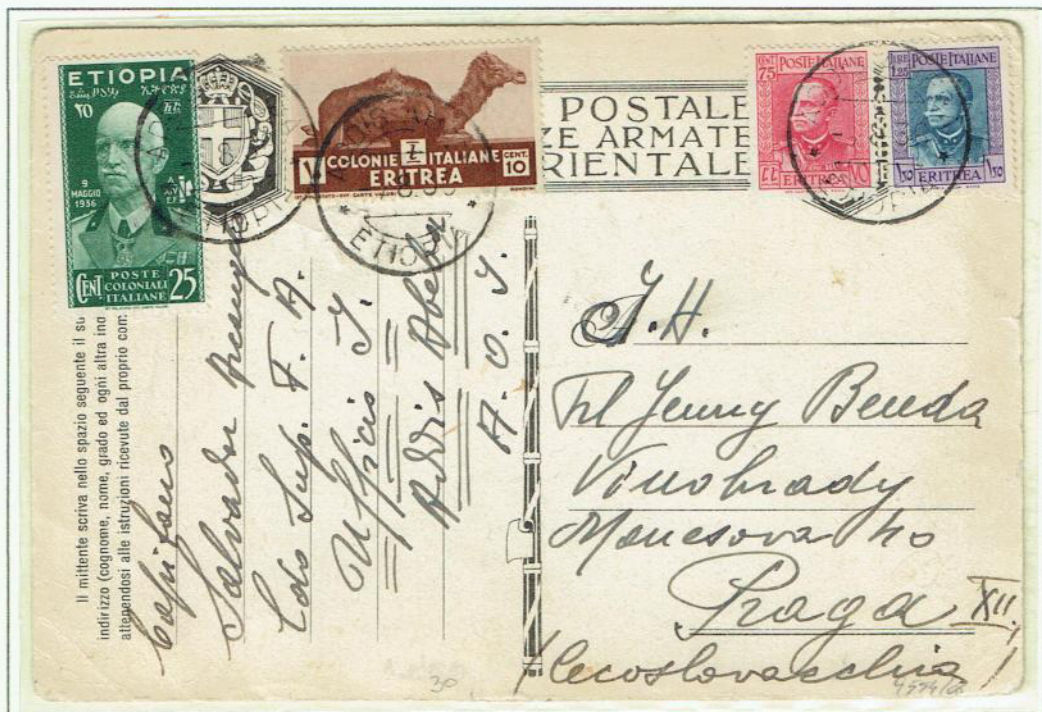 ETIOPIA
9
MAGGIO
1936
POSTE
COLONIALI
ITALIANE
CENT. 25
COLONIE ITALIANE
ERITREA
CENT. 10
POSTALE
ZE ARMATE
RIENTALE
CENT 75
POSTE ITALIANE
ERITREA
LIRE 1.25
POSTE ITALIANE
ERITREA
ETIOPIA
Il mittente scriva nello spazio seguente il su
indirizzo (cognome, nome, grado ed ogni altra ind
attenendosi alle istruzioni ricevute dal proprio com
Capitano
Salvador
Sup. F. A.
Ufficio I.
Addis Abeba
A. O. I.
J. H.
Jenny Benda
Vinohrady
Manesova 40
Praga XII.
(Cecoslovacchia)
30